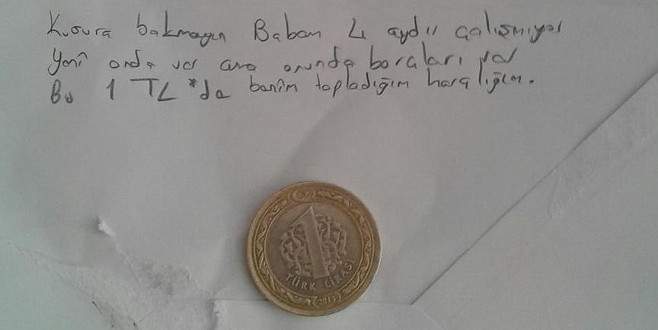 Kusura bakmayın Babam 4 aydır çalışmıyor
Yani onda var ama onunda borçları var
Bu 1 TL *da benim topladığım harçlığım.
1
TÜRK LİRASI